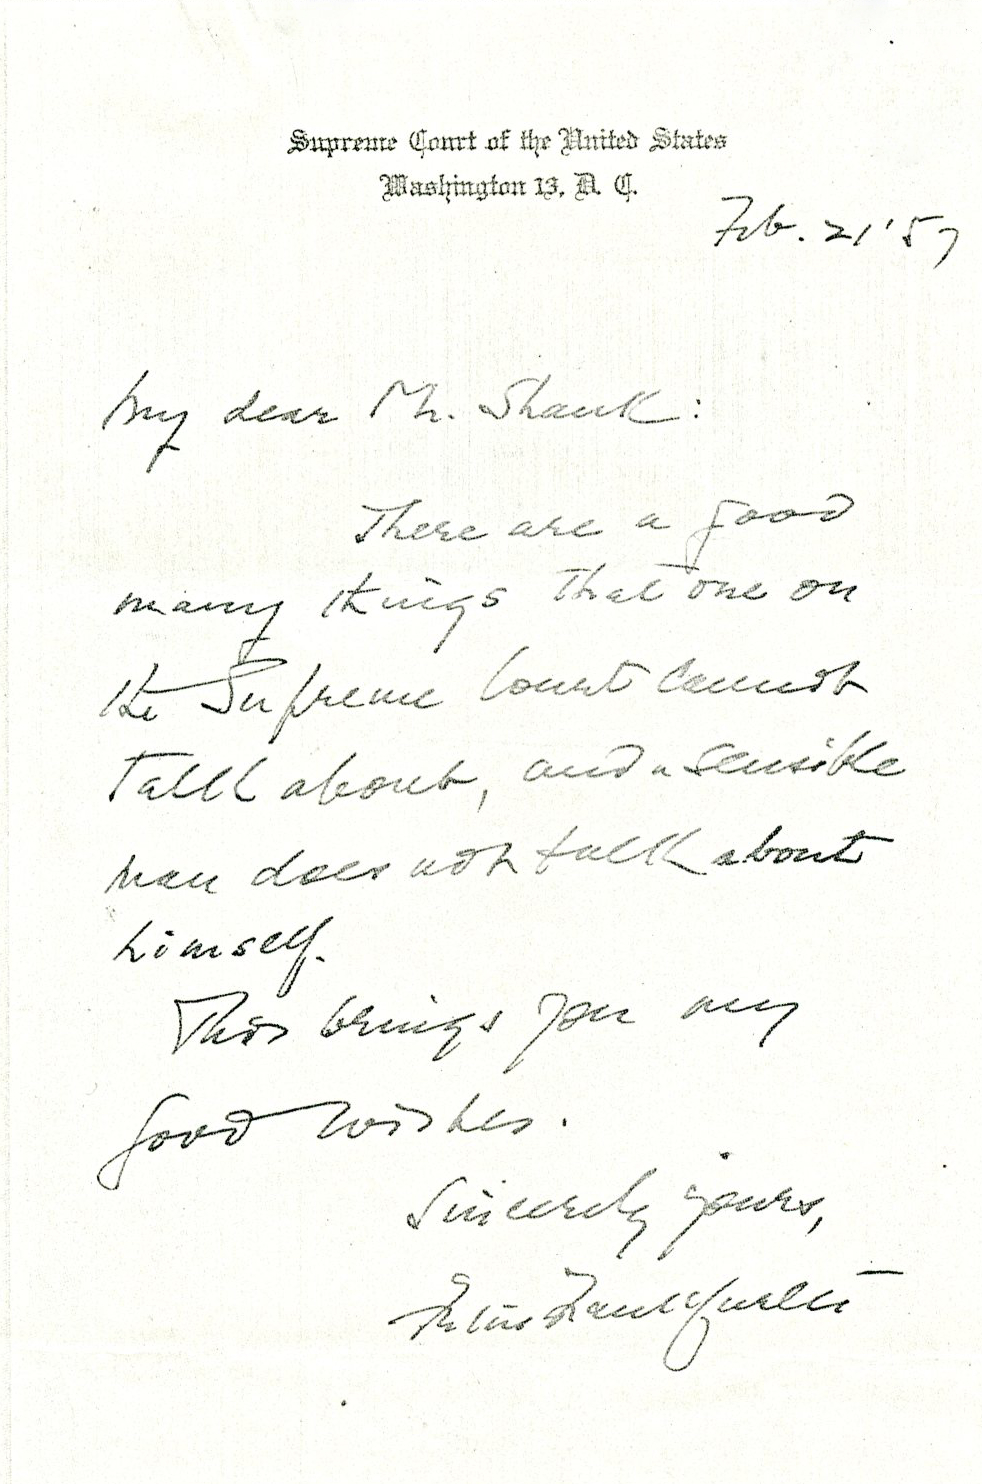 Supreme Court of the United States
Washington 13, D. C.
Feb. 21 '57
My dear Mr. Shank:
There are a good
many things that one on
the Supreme Court cannot
talk about, and a sensible
man does not talk about
himself.
This brings you my
good wishes.
Sincerely yours,
Felix Frankfurter